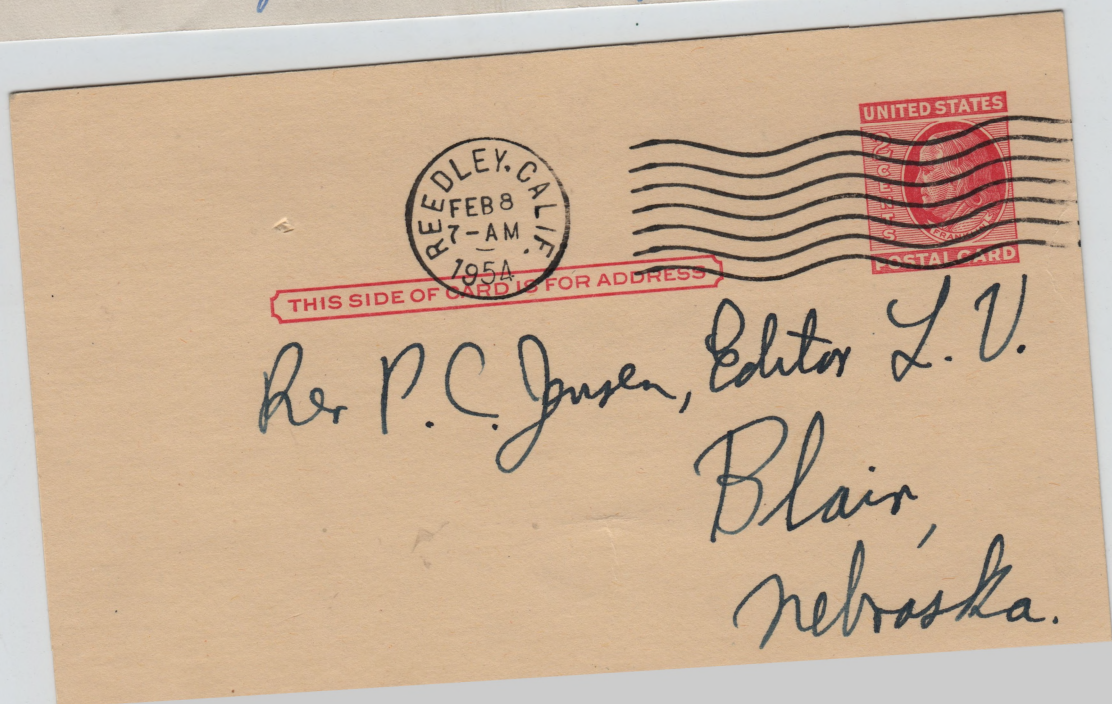 UNITED STATES
2 CENTS
FRANKLIN
POSTAL CARD
REEDLEY, CALIF.
FEB 8
7-AM
1954
THIS SIDE OF CARD IS FOR ADDRESS
Rev P. C. Jensen, Editor L. V.
Blair,
Nebraska.